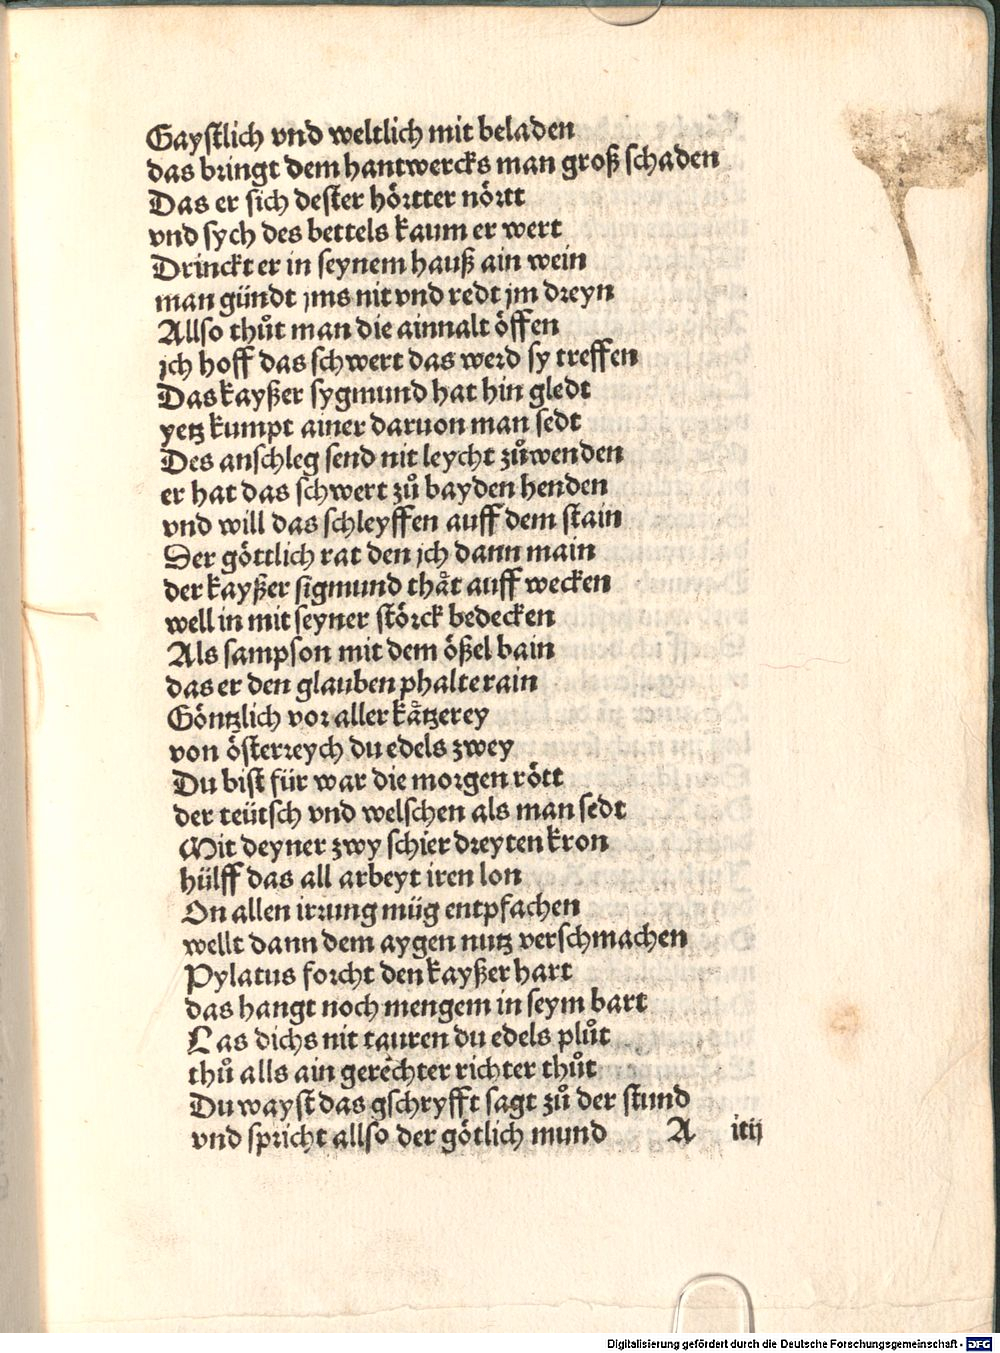 Gaystlich vnd weltlich mit beladen
das bringt dem hantwercks man groß schaden
Das er sich dester hörtter nörtt
vnd sych des bettels kaum er wert
Drinckt er in seynem hauß ain wein
man gündt jms nit vnd redt jm dreyn
Allso thůt man die ainnalt öffen
jch hoff das schwert das werd sy treffen
Das kayßer sygmund hat hin gledt
yetz kumpt ainer daruon man sedt
Des anschleg send nit leycht zůwenden
er hat das schwert zů bayden henden
vnd will das schleyffen auff dem stain
Der göttlich rat den jch dann main
der kayßer sigmund thåt auff wecken
well in mit seyner störck bedecken
Als sampson mit dem ößel bain
das er den glauben phalte rain
Göntzlich vor aller kåtzerey
von österreych du edels zwey
Du bist für war die morgen rött
der teütsch vnd welschen als man sedt
Mit deyner zwy schier dreyten kron
hülff das all arbeyt iren lon
On allen irrung müg entpfachen
wellt dann dem aygen nutz verschmachen
Pylatus forcht den kayßer hart
das hangt noch mengem in seym bart
Las dichs nit tauren du edels plůt
thů alls ain gerechter richter thůt
Du wayst das gschryfft sagt zů der stund
vnd spricht allso der götlich mund A iiij
Digitalisierung gefördert durch die Deutsche Forschungsgemeinschaft - DFG